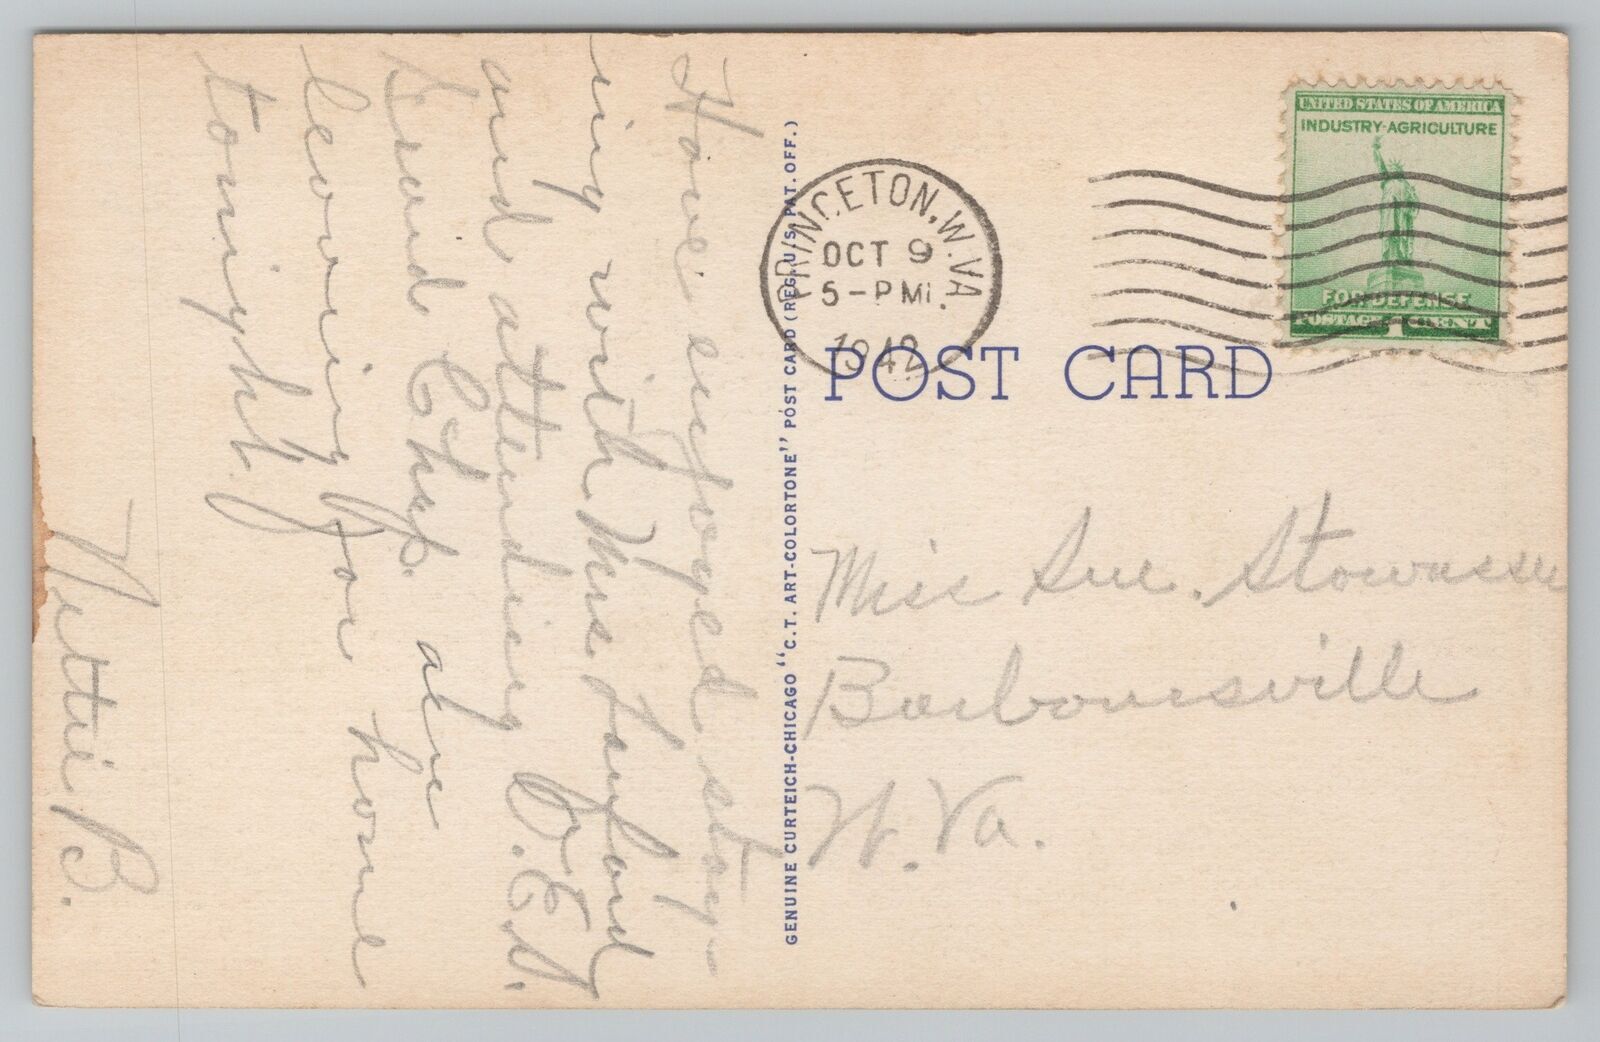 Have enjoyed stay-
ing with Mrs
and attending O.E.S.
Grand Chap. are
leaving for home
tonight.
Nettie B.
GENUINE CURTEICH-CHICAGO "C.T. ART-COLORTONE" POST CARD (REG. U.S. PAT. OFF.)
PRINCETON, W. VA.
OCT 9
5-PM
1942
UNITED STATES OF AMERICA
INDUSTRY-AGRICULTURE
FOR DEFENSE
POSTAGE 1 CENT
POST CARD
Miss Sue. Stowasser
Barboursville
W. Va.